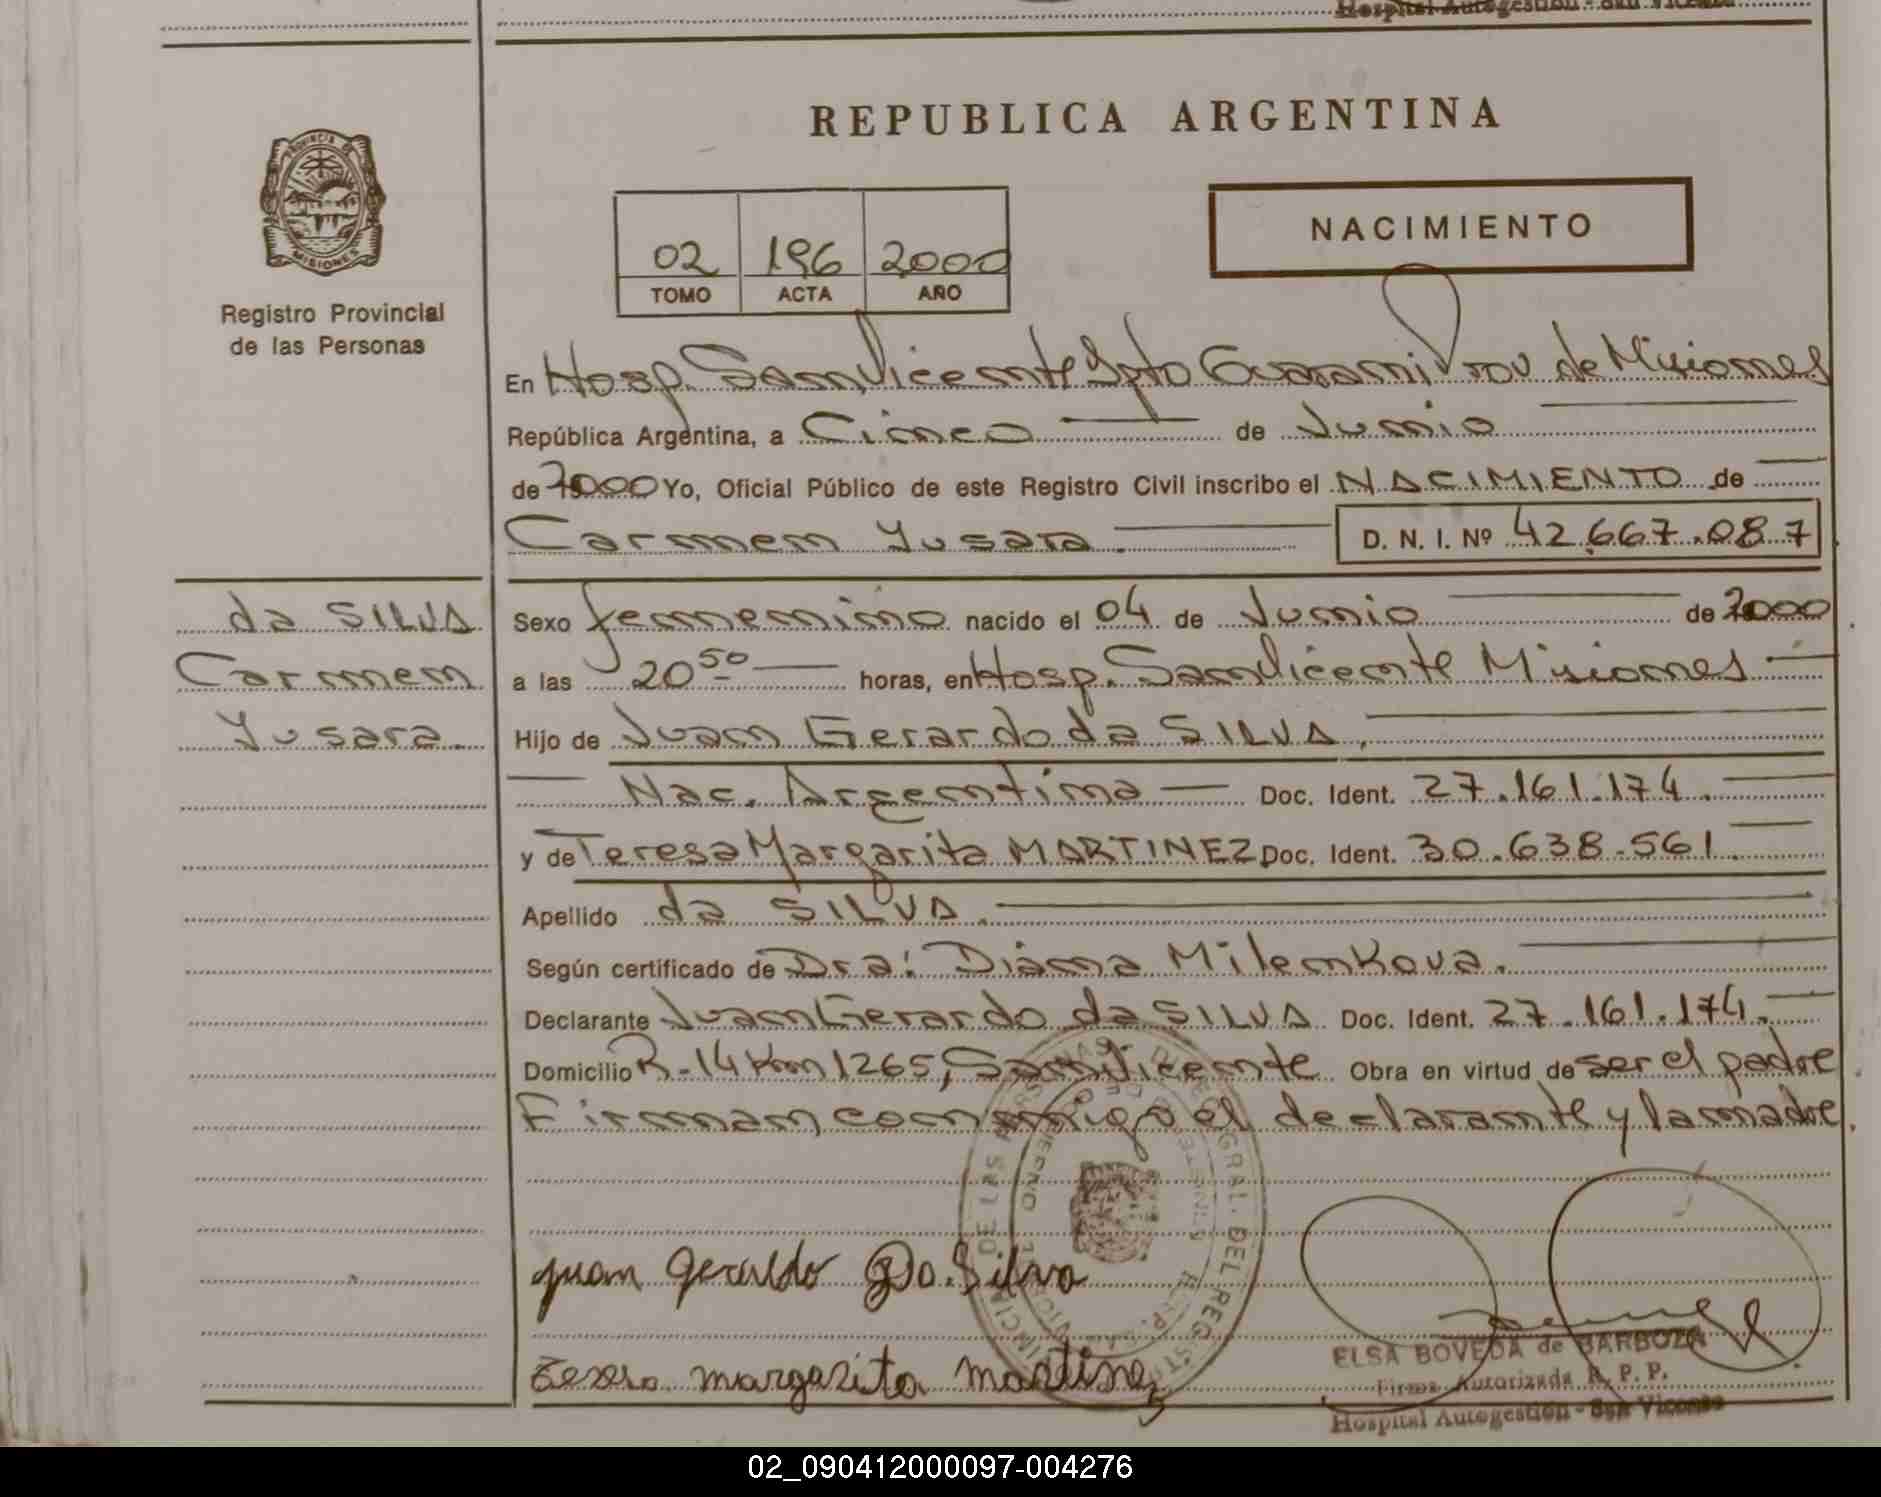 Hospital Autogestión - San Vicente
REPUBLICA ARGENTINA
PROVINCIA DE
MISIONES
Registro Provincial
de las Personas
02 196 2000
TOMO ACTA AÑO
NACIMIENTO
En Hosp. San Vicente Dpto Guarani Prov de Misiones
República Argentina, a Cinco de Junio
de 2000 Yo, Oficial Público de este Registro Civil inscribo el NACIMIENTO de
Carmen Yusara. D. N. I. Nº 42.667.087
da SILVA
Carmen
Yusara.
Sexo femenino nacido el 04 de Junio de 2000
a las 20 50 horas, en Hosp. San Vicente Misiones
Hijo de Juan Gerardo da SILVA,
Nac. Argentina Doc. Ident. 27.161.174.
y de Teresa Margarita MARTINEZ Doc. Ident. 30.638.561.
Apellido da SILVA.
Según certificado de Dra: Diana Milenkova.
Declarante Juan Gerardo da SILVA Doc. Ident. 27.161.174.
Domicilio R-14 Km 1265, San Vicente Obra en virtud de ser el padre.
Firman conmigo el declarante y la madre.
Juan Geraldo Da. Silva
Teresa margarita martinez
ELSA BOVEDA de BARBOZA
Firma Autorizada R. P. P.
Hospital Autogestión - San Vicente
02_090412000097-004276